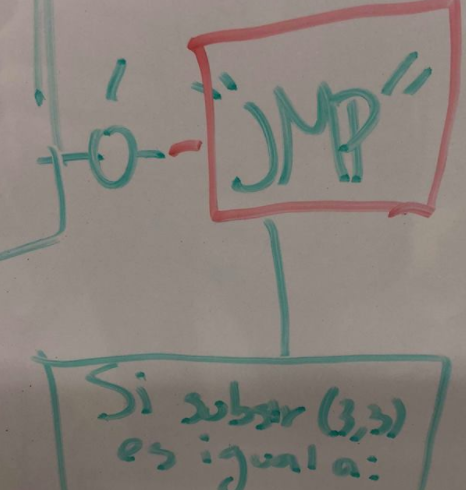 -Ó- "JMP"
Si substr (3,3)
es igual a: